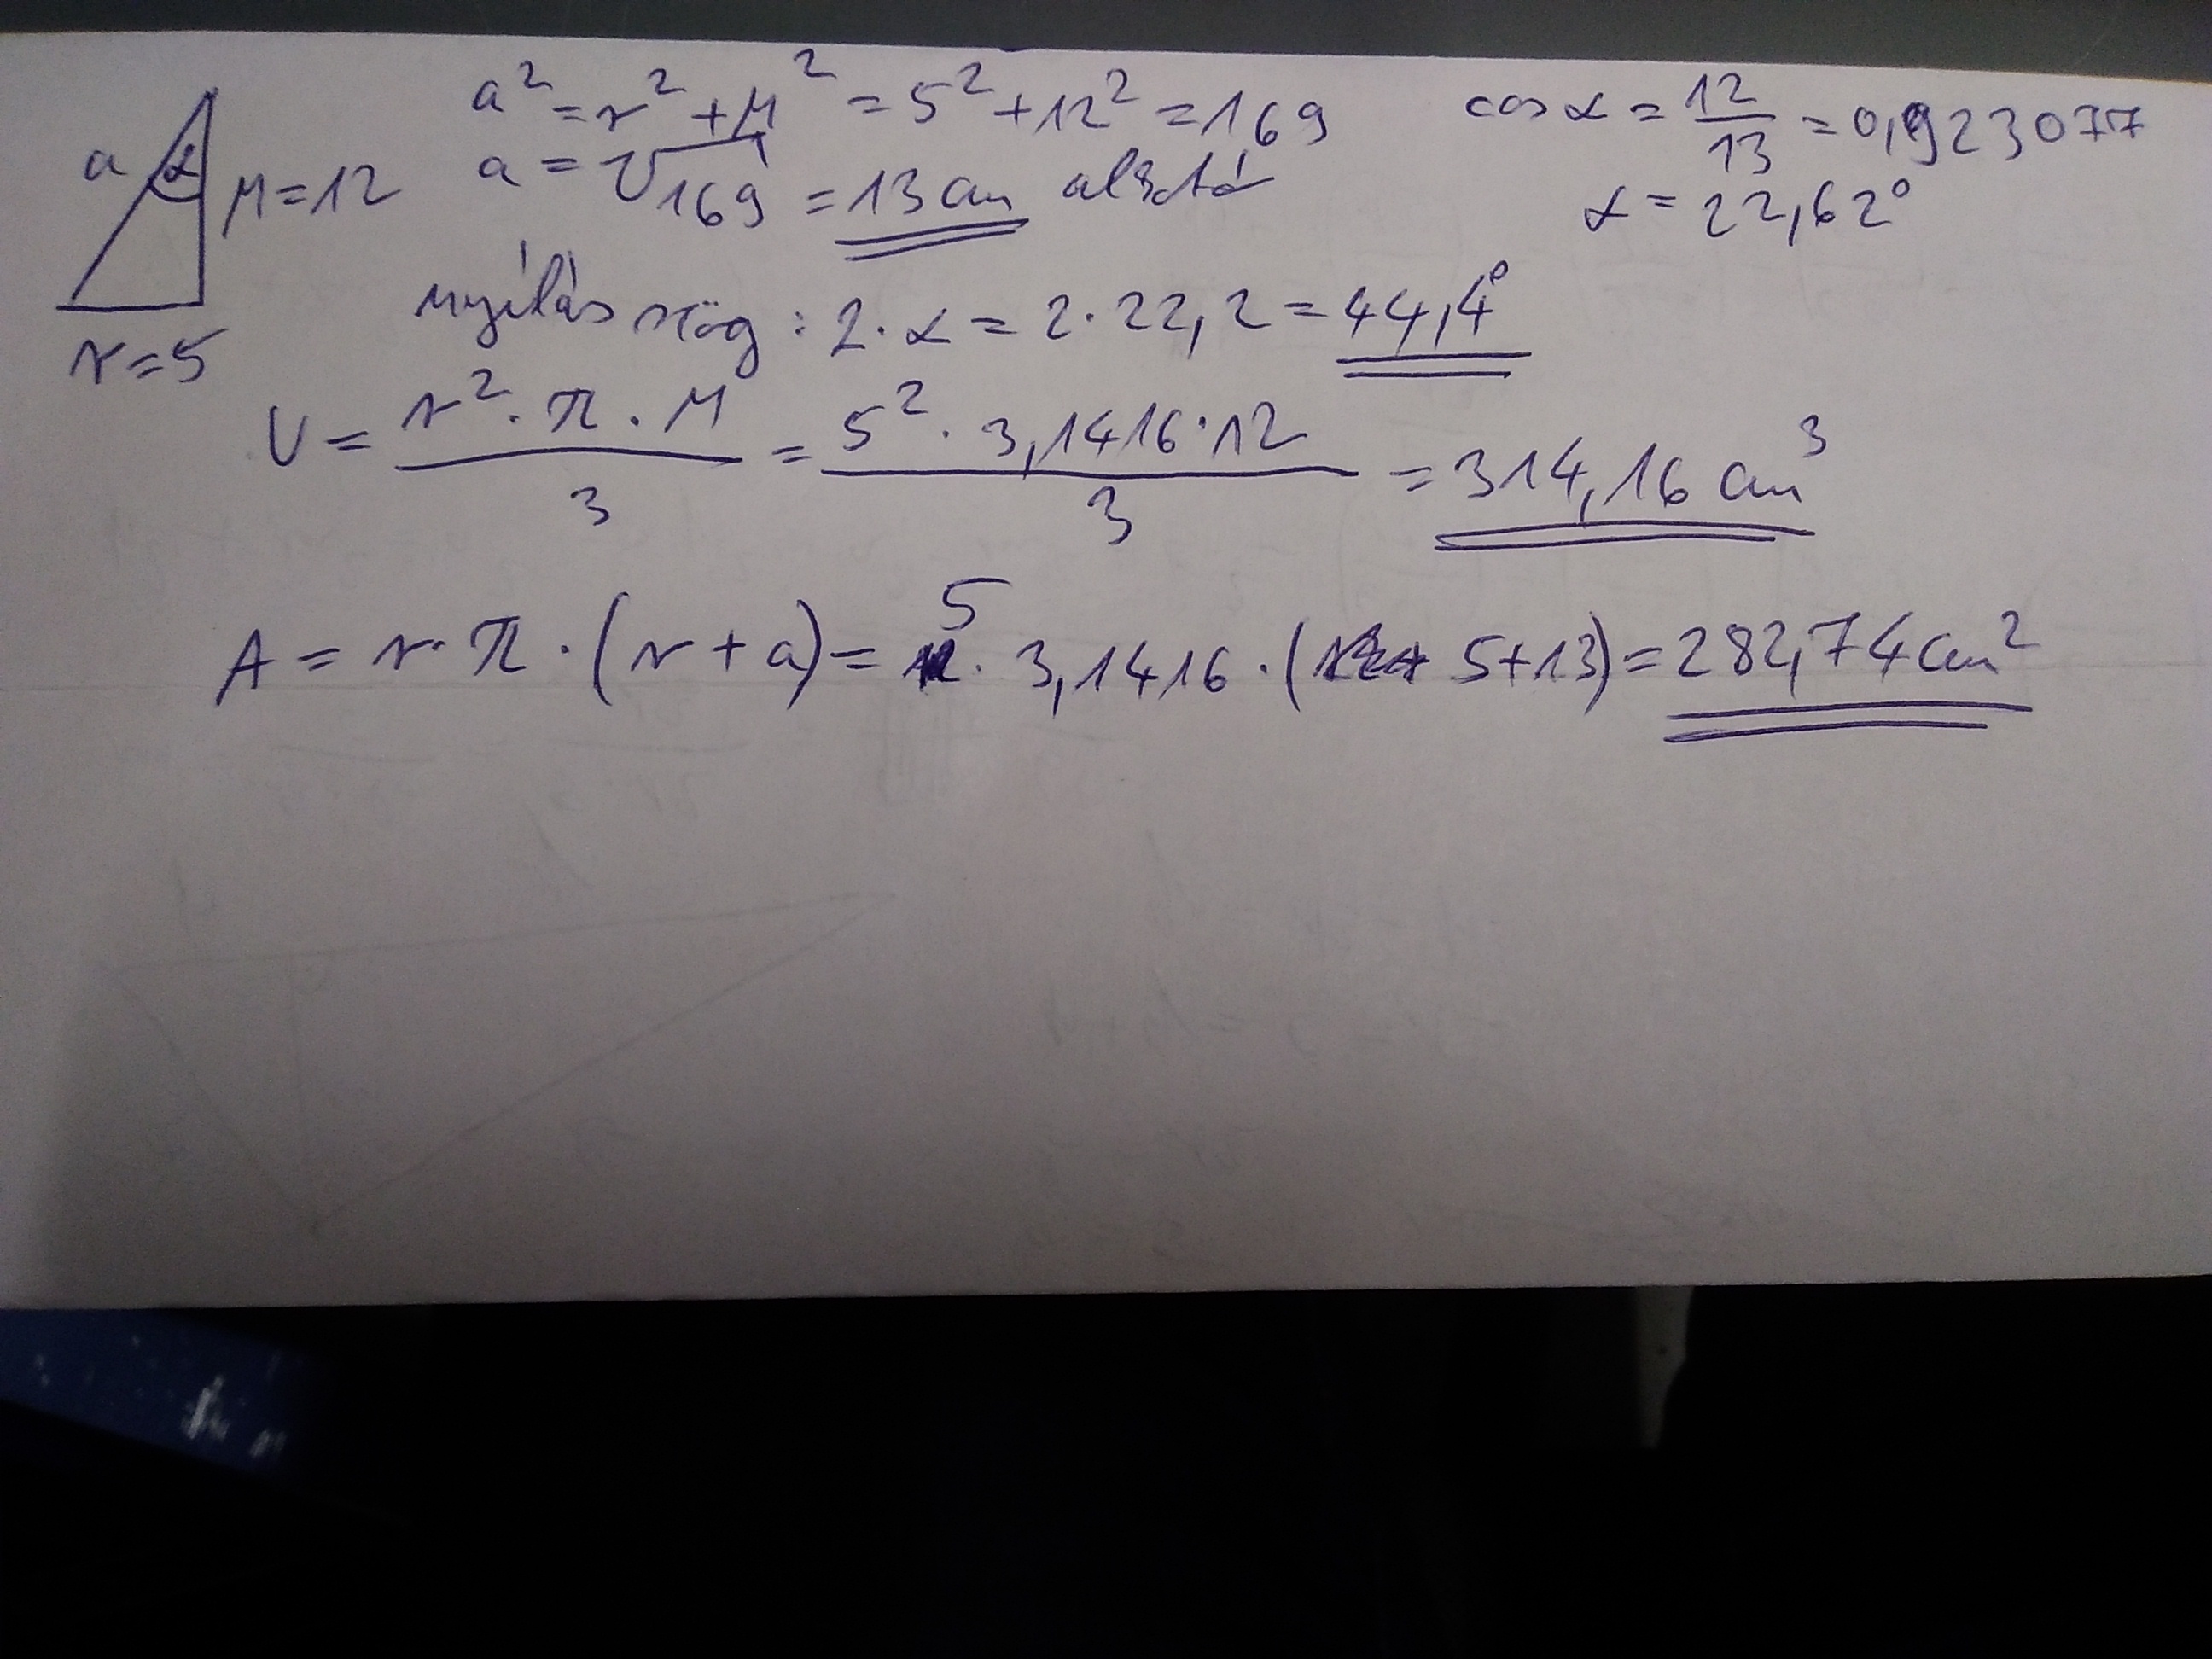 a² = r² + M² = 5² + 12² = 169
a = √169 = 13 cm alkotó
cos α = 12/13 = 0,923077
α = 22,62°
a α M = 12
r = 5
nyílás szög : 2 · α = 2 · 22,2 = 44,4°
V = r² · π · M / 3 = 5² · 3,1416 · 12 / 3 = 314,16 cm³
A = r · π · (r + a) = 5 · 3,1416 · (5 + 13) = 282,74 cm²